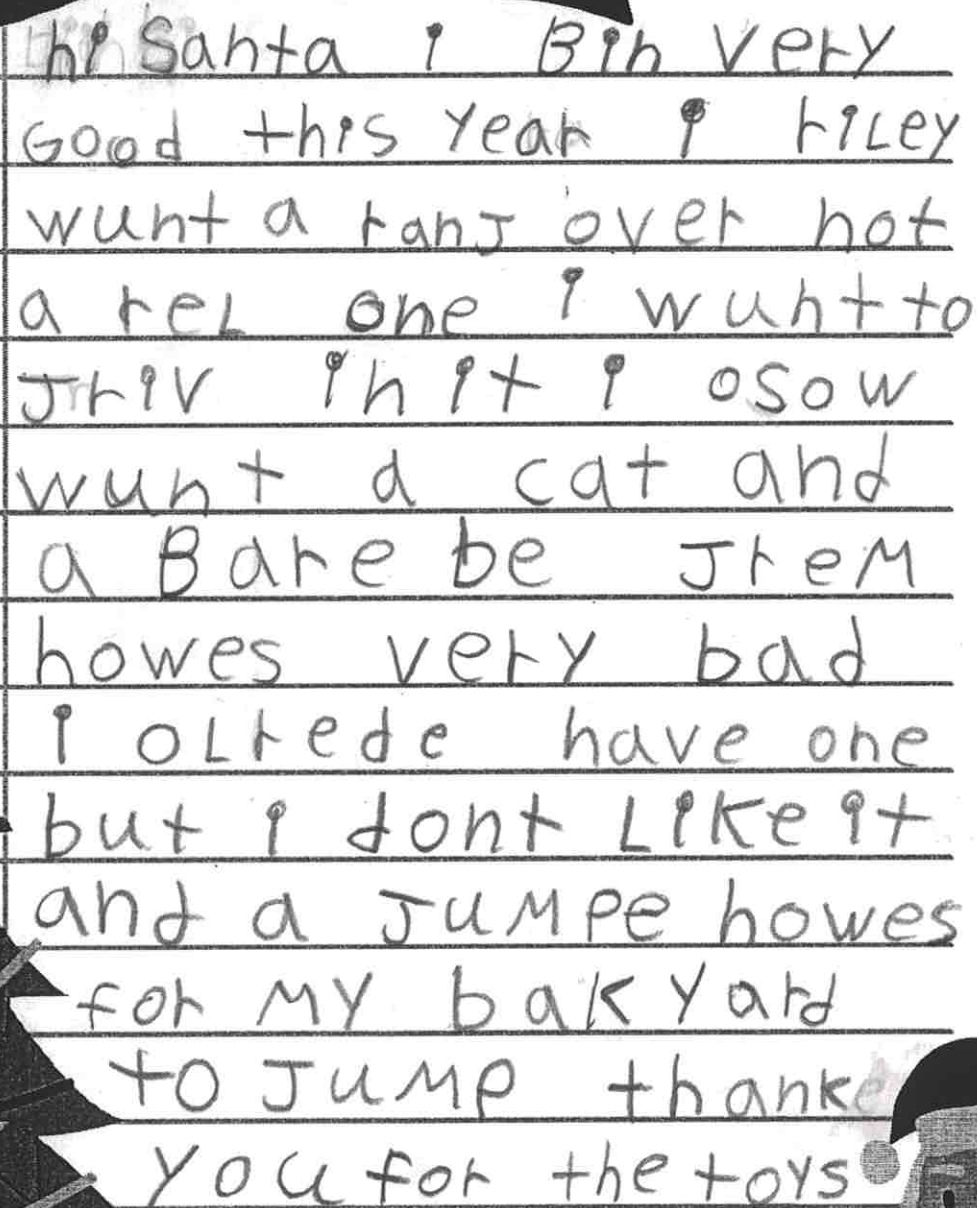 hi Santa i Bin very
Good this Year i riLey
wunt a ranJ over not
a reL one i wunt to
Jriv in it i osow
wunt a cat and
a Bare be JreM
howes very bad
i oLrede have one
but i dont LiKe it
and a JuMpe howes
for MY bakYard
to JuMp thanke
you for the toys